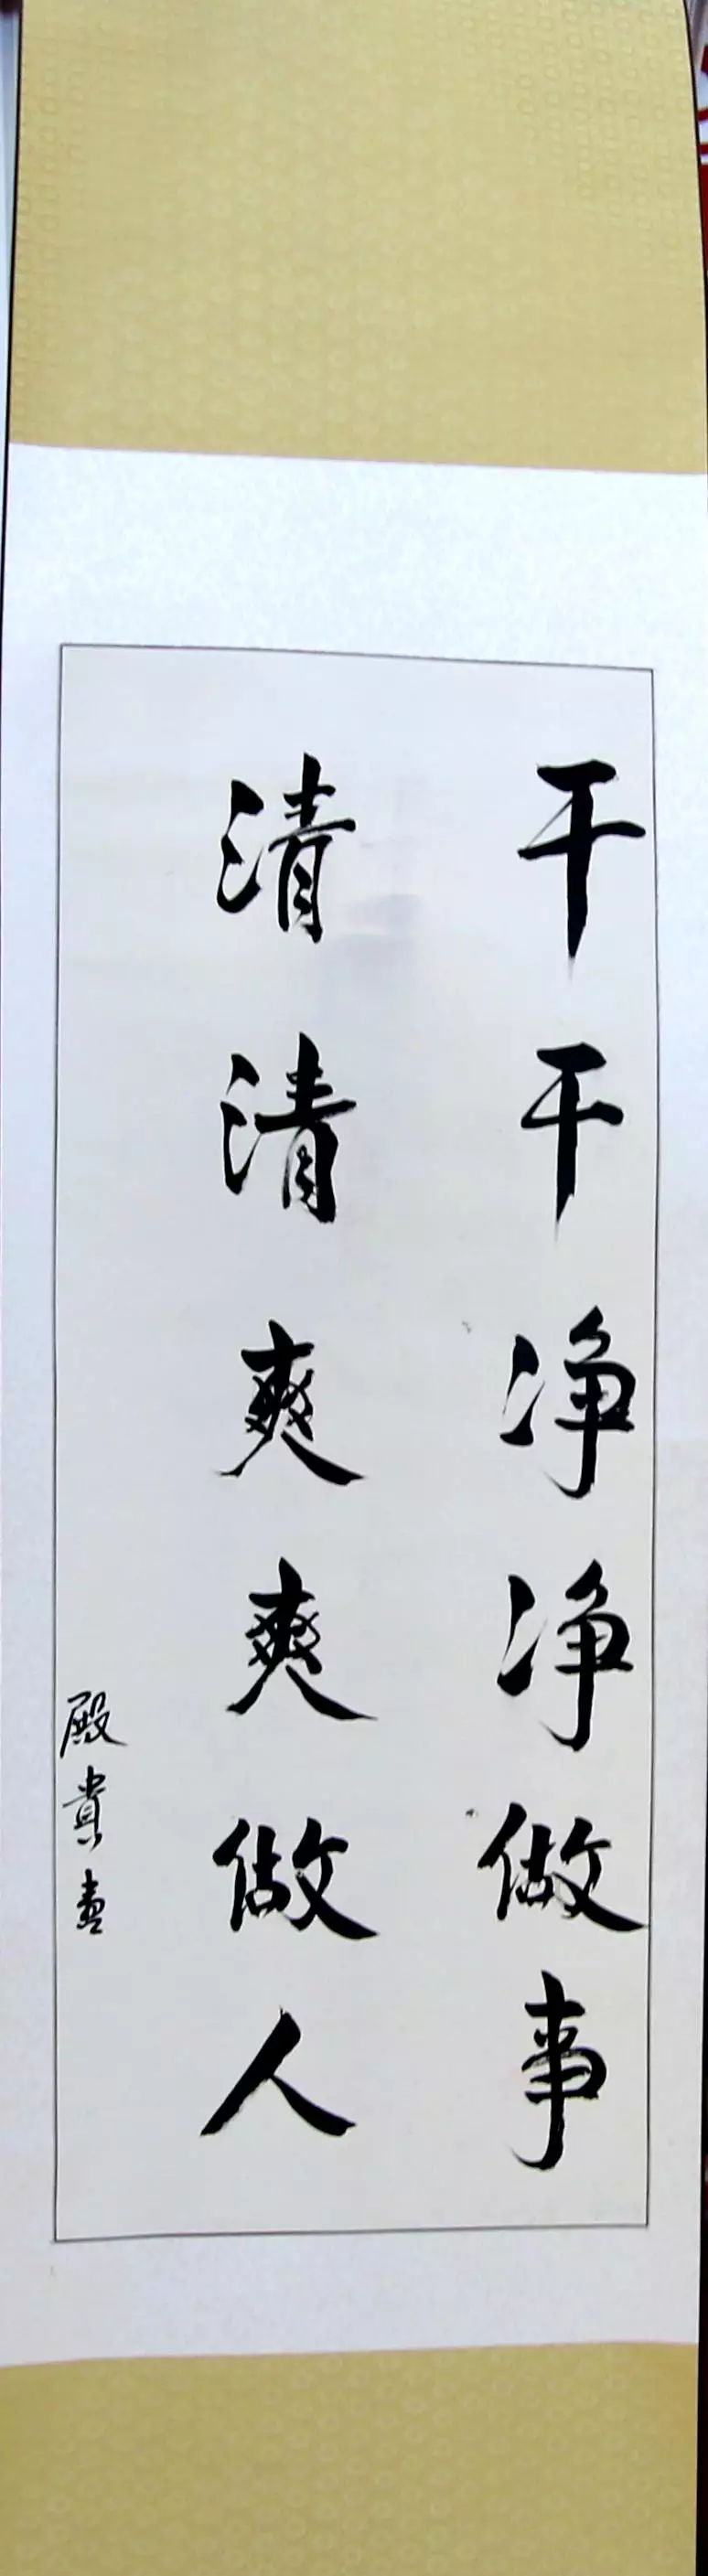 干干净净做事
清清爽爽做人
殿貴書